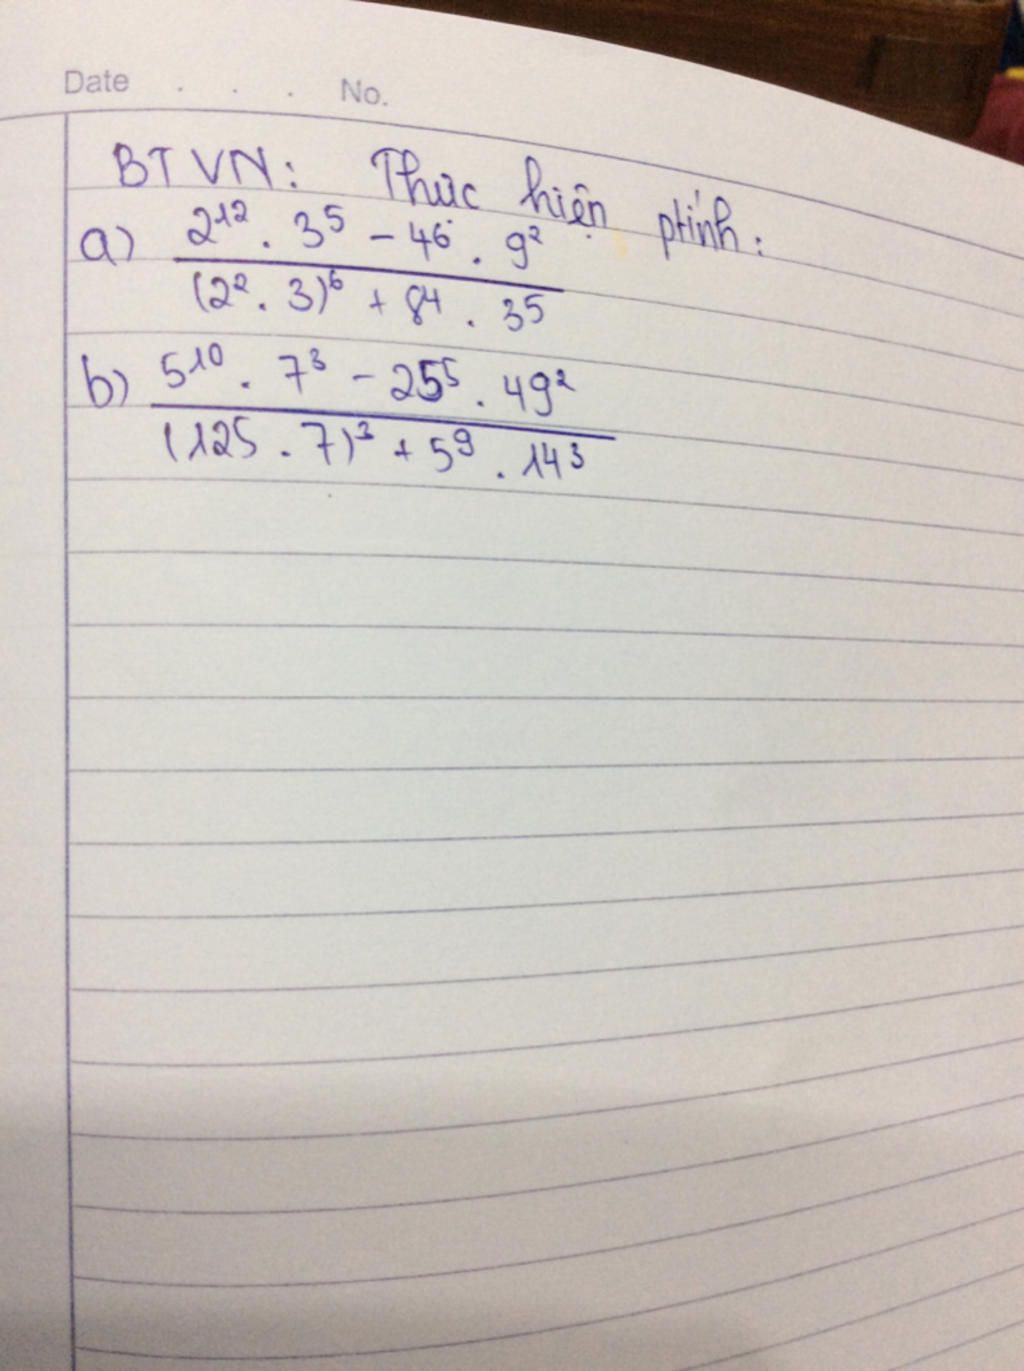 Date . . . No.
BTVN: Thực hiện ptính:
a) 2¹² . 3⁵ - 4⁶ . 9²
(2² . 3)⁶ + 8⁴ . 3⁵
b) 5¹⁰ . 7³ - 25⁵ . 49²
(125 . 7)³ + 5⁹ . 14³